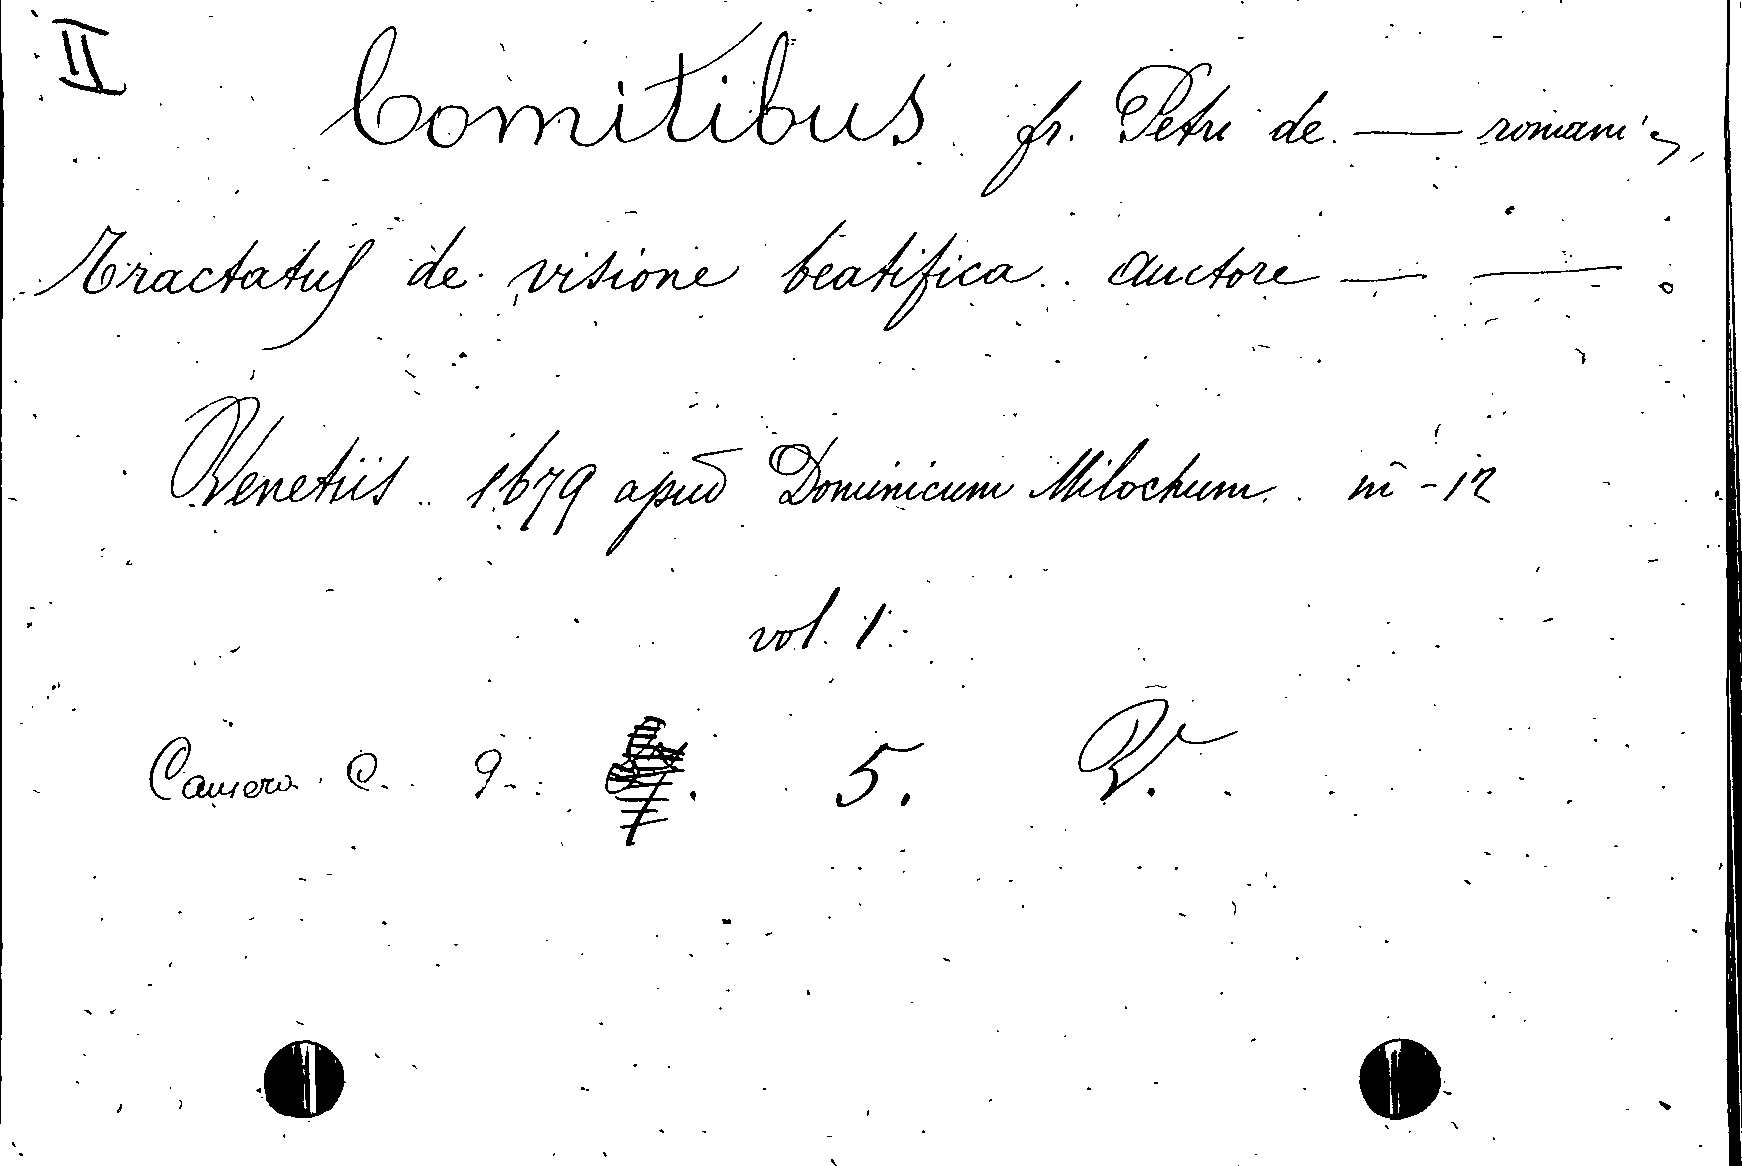 II
Comitibus fr. Petri de — romani,
Tractatus de visione beatifica auctore — — .
Venetiis 1679 apud Dominicum Milochum in-12
vol. 1.
Camera C. 9. 5. V.